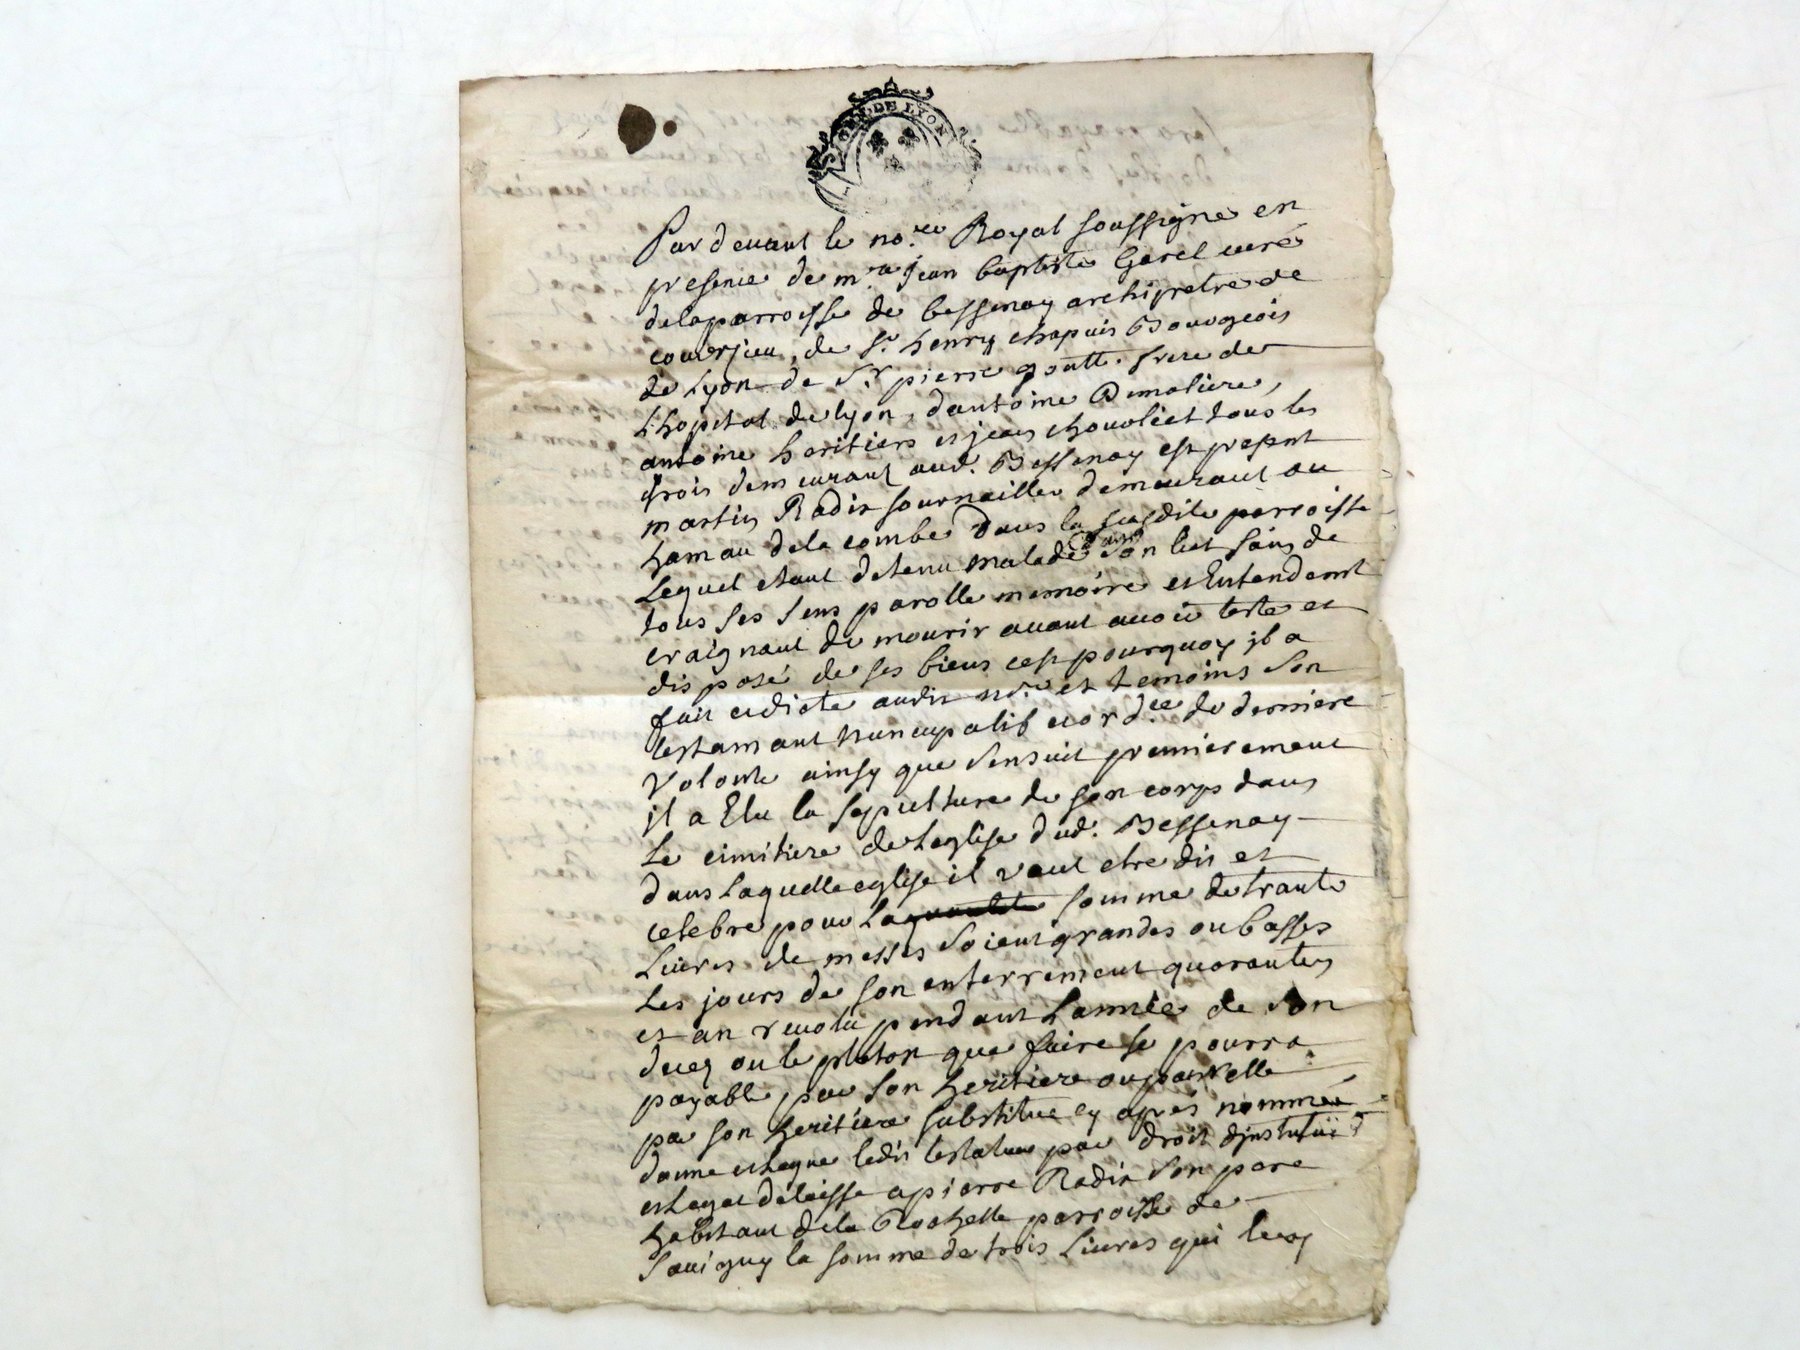 GEN. DE LYON
Pardevant le no.re Royal soussigné en
presence de m.re jean baptiste Garel curé
delaparroisse de bessenay archipretre de
courzieu, de S.r henry chapuis Bourgeois
de Lyon de S.r pierre goutte frere de
Lhopital de lyon, dantoine Dimoliere,
antoine heritiers et jean chouolset tous les
trois demeurant aud. Bessenay est present
martin Radix journaillier demeurant au
hamau dela combe dans la susdite parroisse
Lequel etant detenu malade dans son liet sains de
tous ses sens parolle memoire et Entendemt
craignant de mourir avant avoir teste et
disposé de ses biens cest pourquoy il a
fait et dicte audit no.re et temoins son
testamant nuncupatif et ord.ce de derniere
Volonte ainsy que sensuit premierement
il a Elu la sepulture de son corps dans
Le cimitiere de Leglise dud. Bessenay
dans Laquelle eglise il veut etre dit et
celebre pour La somme de trante
Livres de messes soient grandes ou basses
Les jours de son enterrement quarantes
et an revolu pendant Lannée de son
decez ou le plutot que faire se pourra
payable par son heritiere ou par elle
par son heritiere substitue cy après nommée
donne et legue ledit testateur par droit djnstitui
et legat delaisse a pierre Radix son pere
habitant dela Rochelle parroisse de
Savigny la somme de trois Livres qui luy